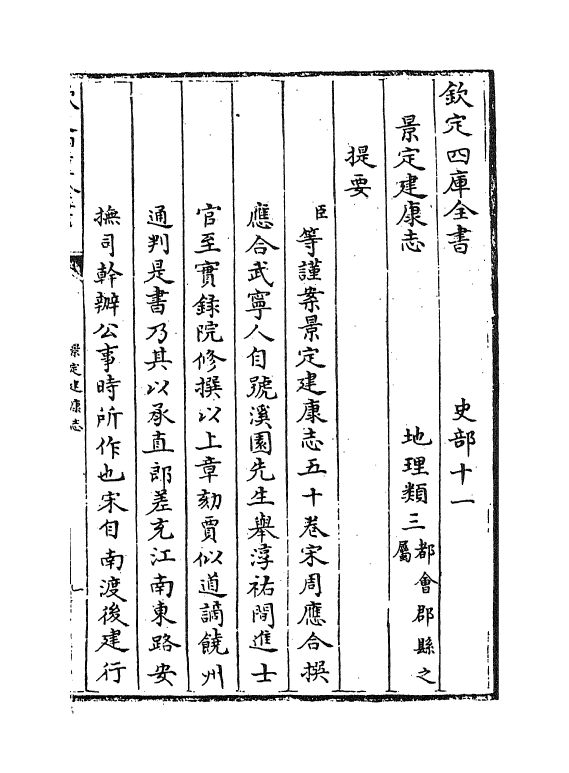 欽定四庫全書　史部十一
景定建康志　地理類三都會郡縣之屬
提要
臣等謹案景定建康志五十卷宋周應合撰
應合武寧人自號溪園先生舉淳祐間進士
官至實録院修撰以上章劾賈似道謫饒州
通判是書乃其以承直郎差充江南東路安
撫司幹辦公事時所作也宋自南渡後建行
景定建康志